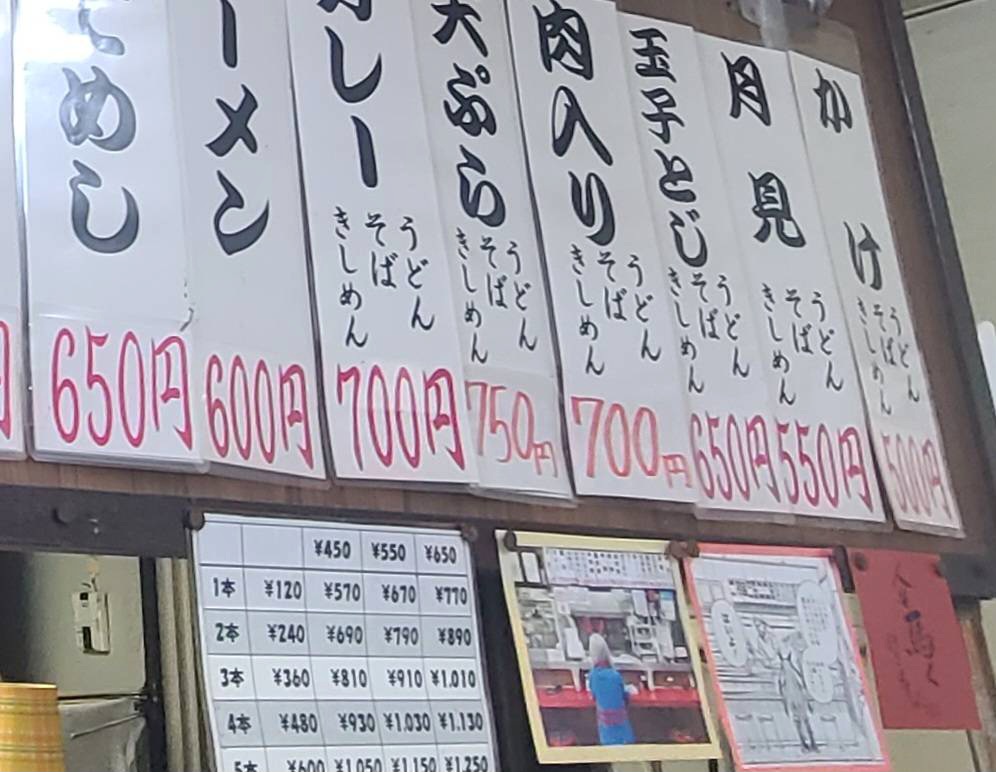 かけ
うどん
そば
きしめん
500円
月見
うどん
そば
きしめん
550円
玉子とじ
うどん
そば
きしめん
650円
肉入り
うどん
そば
きしめん
700円
天ぷら
うどん
そば
きしめん
750円
カレー
うどん
そば
きしめん
700円
ーメン
600円
めし
650円
円
¥450 ¥550 ¥650
1本 ¥120 ¥570 ¥670 ¥770
2本 ¥240 ¥690 ¥790 ¥890
3本 ¥360 ¥810 ¥910 ¥1.010
4本 ¥480 ¥930 ¥1.030 ¥1.130
5本 ¥600 ¥1.050 ¥1.150 ¥1.250